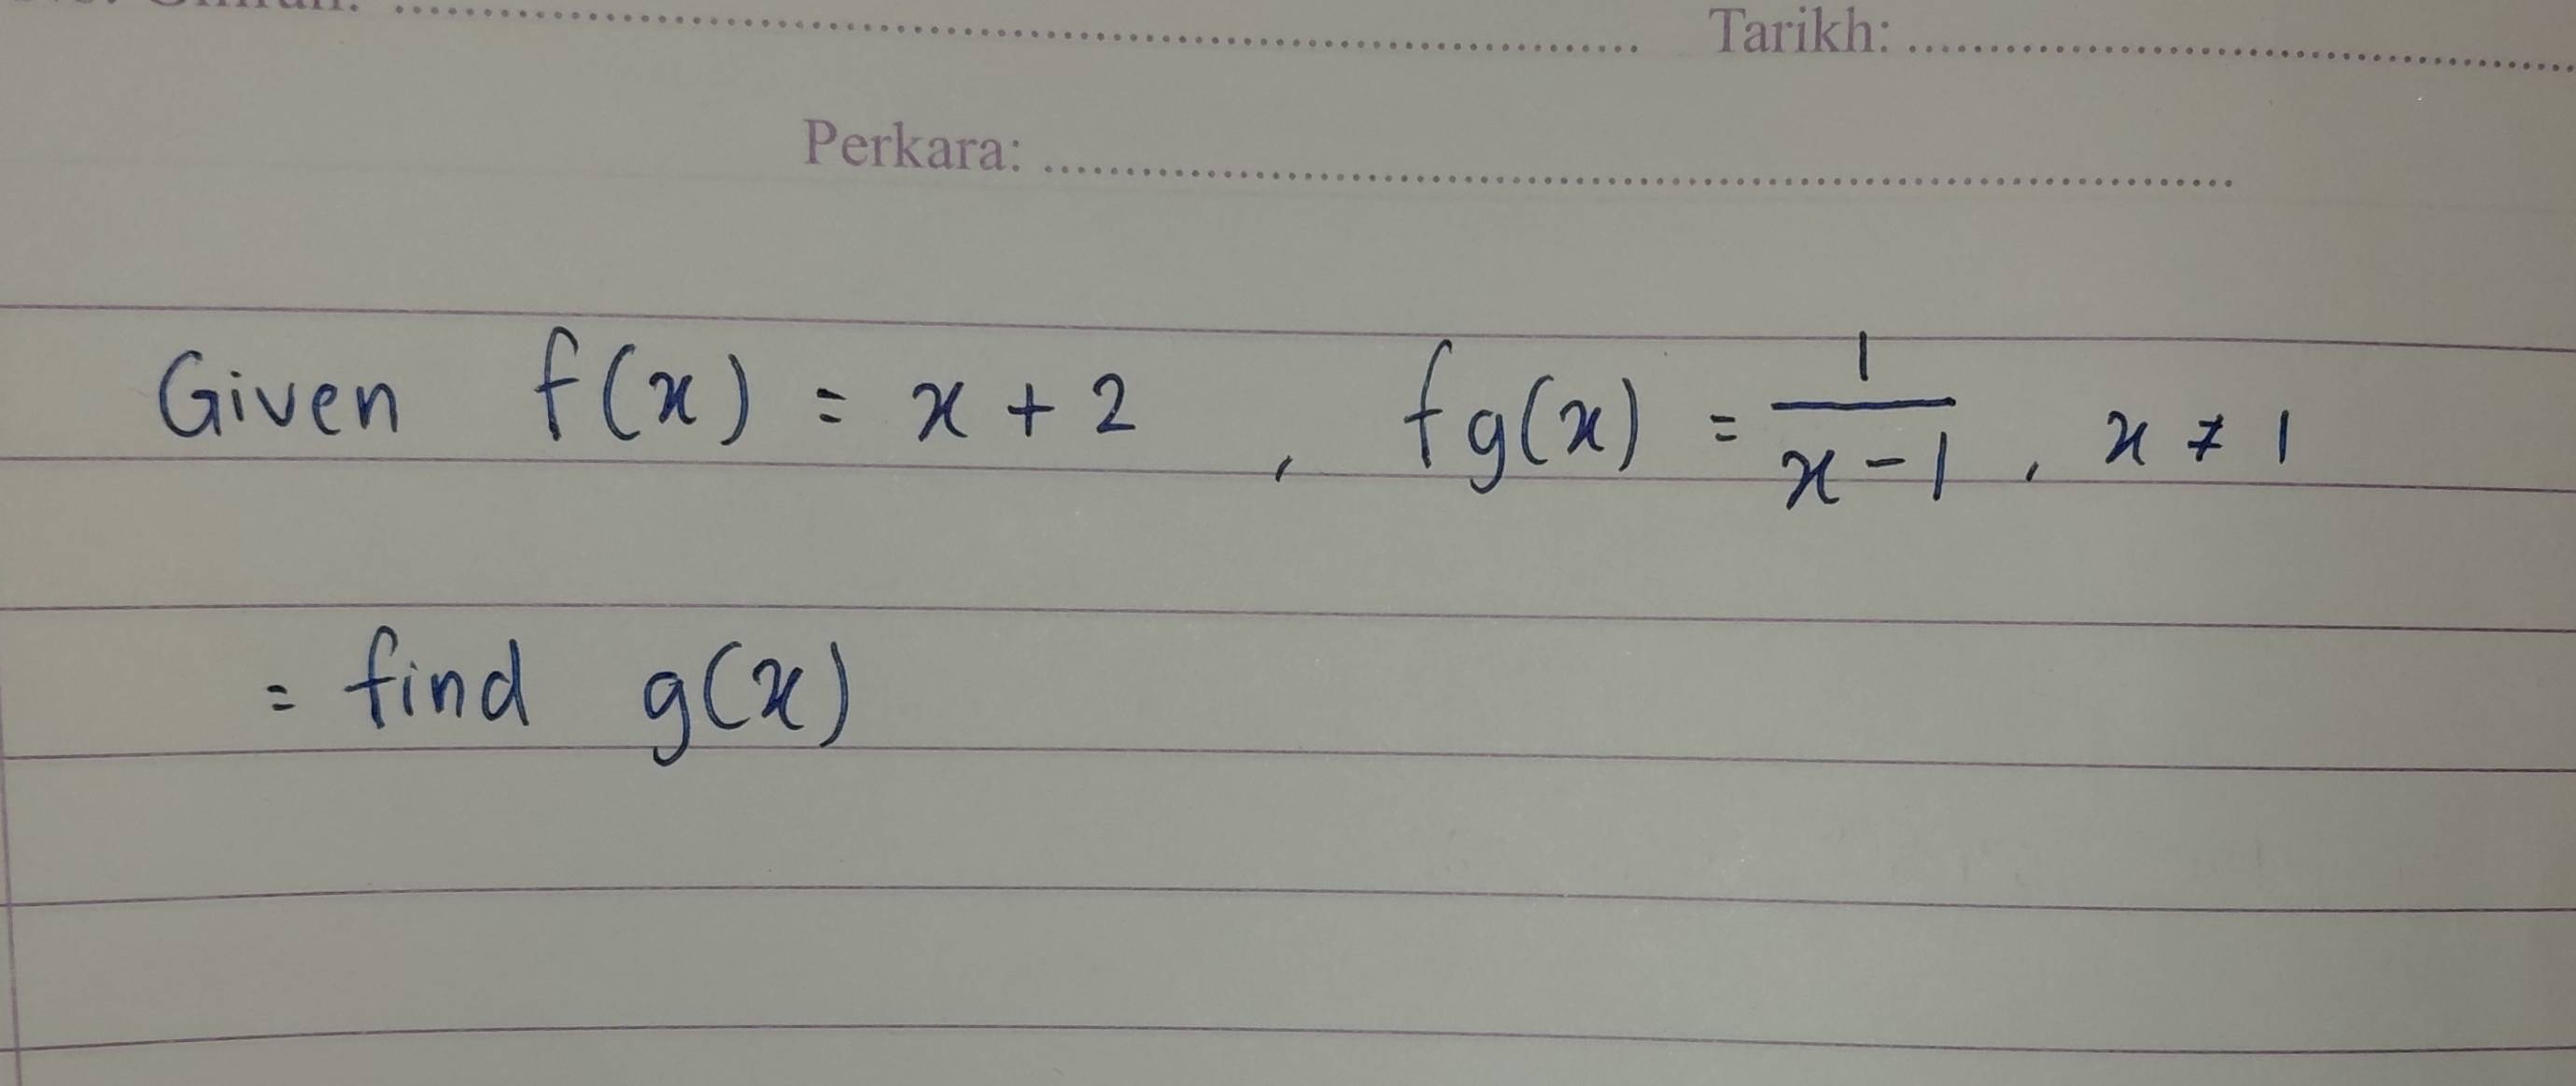 Tarikh: ....................
Perkara: ....................
Given f(x) = x + 2 , fg(x) = 1/(x-1) , x ≠ 1
= find g(x)